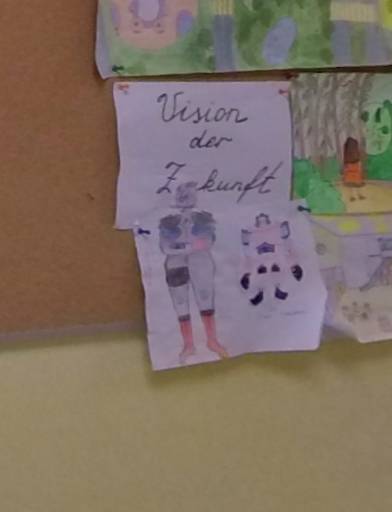 Vision
der
Zukunft